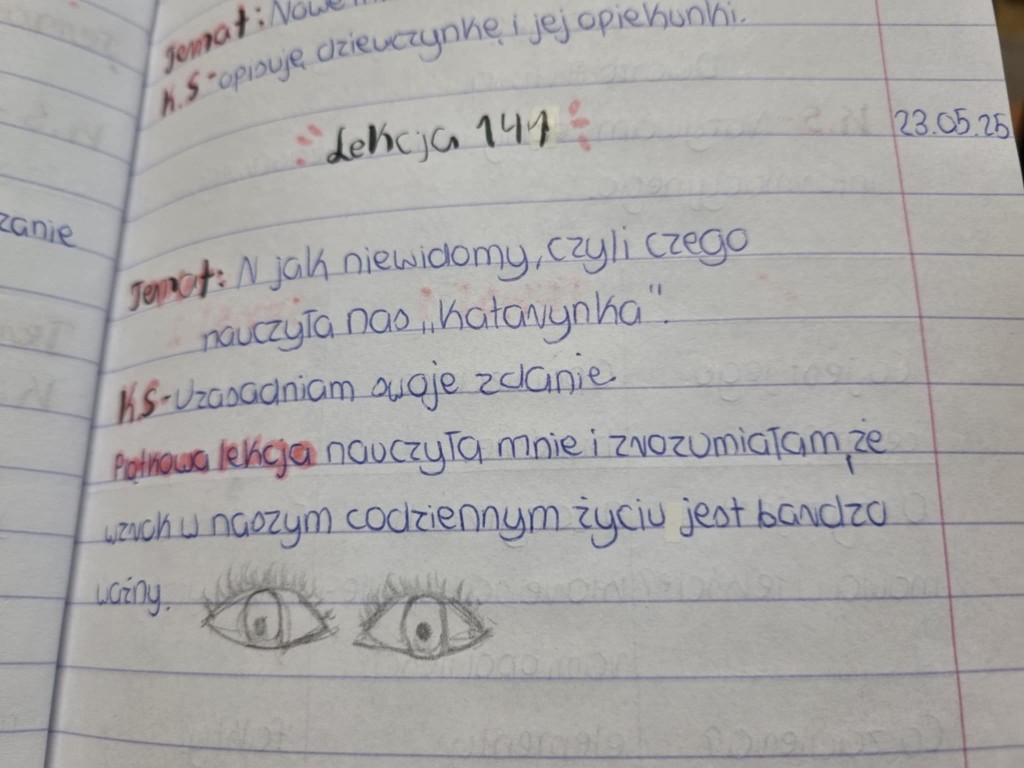 Temat: Nowe
K.S-opisuję dziewczynkę i jej opiekunki.
Lekcja 141
23.05.25
zanie
Temat: N jak niewidomy, czyli czego
nauczyła nas „Katarynka".
KS-Uzasadniam swoje zdanie.
Patkowa lekcja nauczyła mnie i zrozumiałam, że
wzrok w naszym codziennym życiu jest bardzo
ważny.